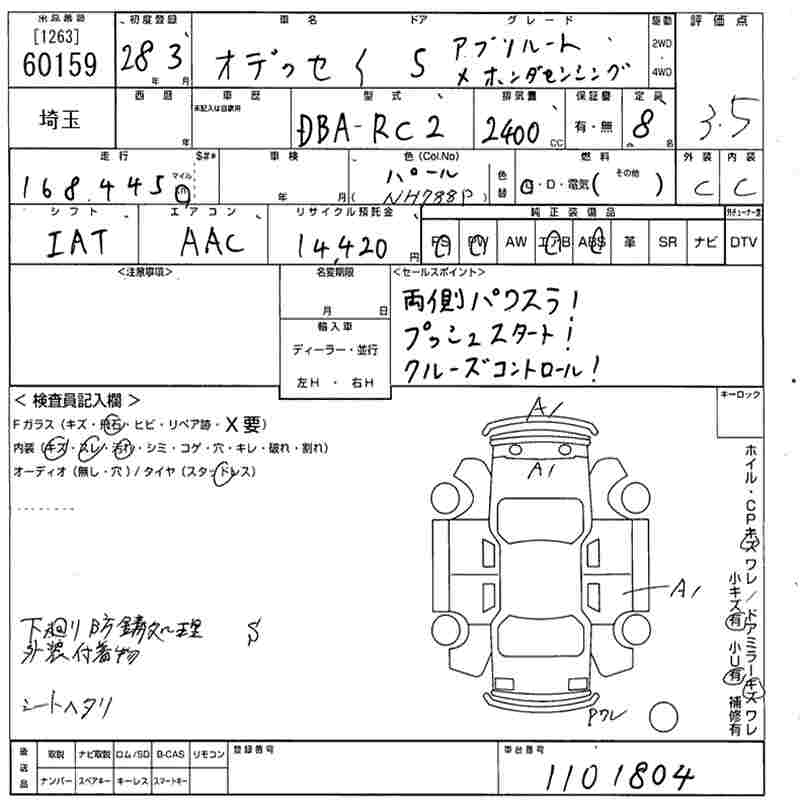 出品番号 初度登録 車名 ドア グレード 駆動 評価点
[1263]
60159 28 3 オデッセイ 5 アブソルート 2WD
メ ホンダセンシング ・4WD
年 月
西暦 車歴 型式 排気量 保証書 定員
未記入は自家用
埼玉 DBA-RC2 2400 有・無 8 3.5
年 CC 名
走行 S#* 車検 色(Col.No) 燃料 外装 内装
168,445 マイル km 年 月 パール 色替 G・D・電気( その他 ) C C
( NH788P )
シフト エアコン リサイクル預託金 純正装備品 地デジチューナー
IAT AAC 14,420円 PS PW AW エアB ABS 革 SR ナビ DTV
<注意事項> 名変期限 <セールスポイント>
月 日
両側パワスラ!
輸入車
プッシュスタート!
ディーラー・並行
クルーズコントロール!
左H ・ 右H
<検査員記入欄> キーロック
Fガラス(キズ・飛石・ヒビ・リペア跡・X要)
内装(キズ・スレ・汚れ・シミ・コゲ・穴・キレ・破れ・割れ)
オーディオ(無し・穴)/タイヤ(スタッドレス)
A1
A1
A1
Pワレ
ホイル・CPキズ ワレ / ドアミラーキズ ワレ
小キズ有 小U有 補修有
下廻り防錆処理 S
外装付着物
シートヘタリ
後送品 取説 ナビ取説 ロム/SD B-CAS リモコン 登録番号 車台番号
ナンバー スペアキー キーレス スマートキー 1101804